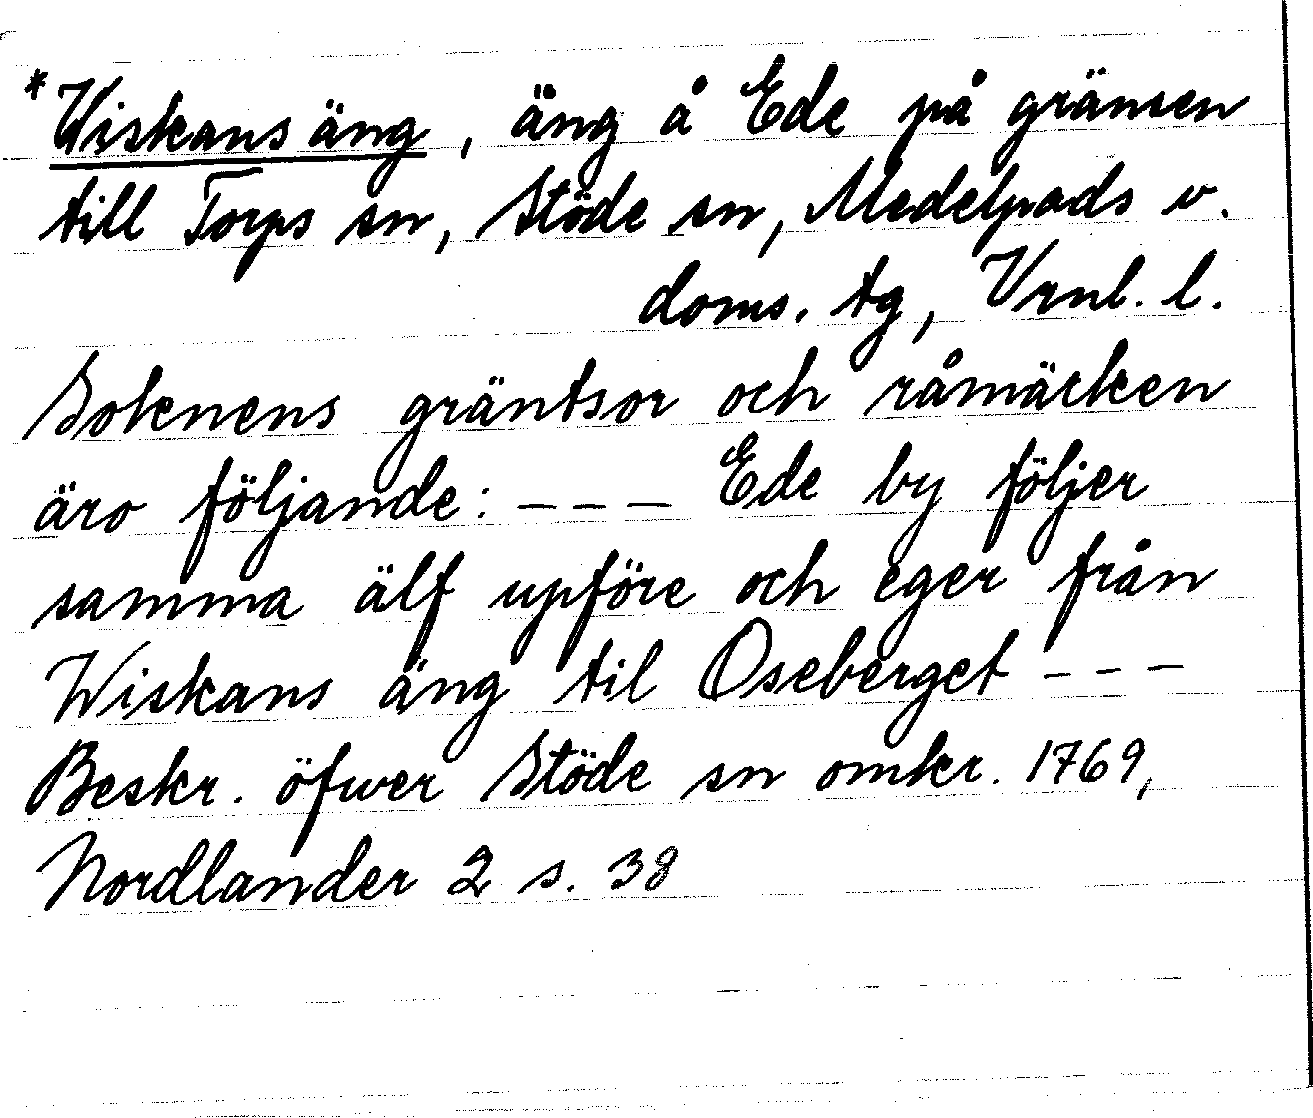 *Wiskans äng, äng å Ede på gränsen
till Torps sn, Stöde sn, Medelpads v.
doms. tg, Vrnl. l.
Soknens gräntsor och råmärken
äro följande: - - - Ede by följer
samma älf upföre och eger från
Wiskans äng til Oseberget - - -
Beskr. öfwer Stöde sn omkr. 1769,
Nordlander 2 s. 38